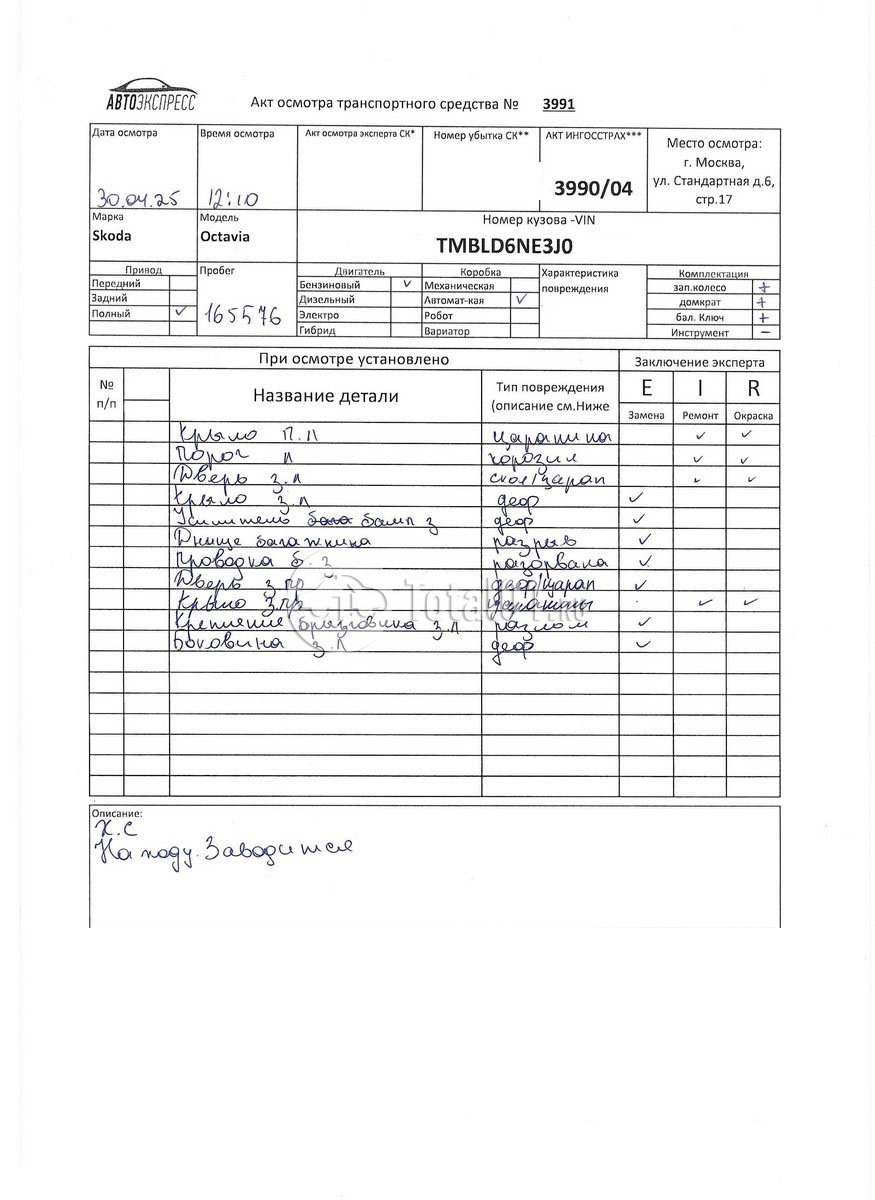 АВТОЭКСПРЕСС
Акт осмотра транспортного средства № 3991
Дата осмотра Время осмотра Акт осмотра эксперта СК* Номер убытка СК** АКТ ИНГОССТРАХ*** Место осмотра:
г. Москва,
30.04.25 12:10 3990/04 ул. Стандартная д.6,
стр.17
Марка Модель Номер кузова -VIN
Skoda Octavia TMBLD6NE3J0
Привод Пробег Двигатель Коробка Характеристика Комплектация
Передний Бензиновый ✓ Механическая повреждения зап.колесо +
Задний Дизельный Автомат-кая ✓ домкрат +
Полный ✓ 165576 Электро Робот бал. Ключ +
Гибрид Вариатор Инструмент –
При осмотре установлено Заключение эксперта
№ п/п Название детали Тип повреждения (описание см.Ниже E I R
Замена Ремонт Окраска
Крыло п.л царапина ✓ ✓
Порог л корозия ✓ ✓
Дверь з.л скол/царап ✓ ✓
Крыло з.л деф ✓
Усилитель бамп з деф ✓
Днище багажника разрыв ✓
Проводка б.з разорвана ✓
Дверь з.пр деф/царап ✓
Крыло з.пр царапины ✓ ✓
Крепление брызговика з.л разлом ✓
Боковина з.л деф ✓
Total01.ru
Описание:
Х.С
На ходу. Заводится